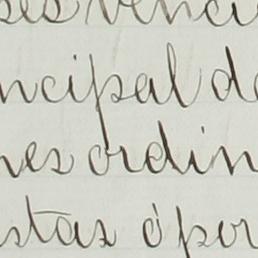 ses venci
ncipal de
nes ordin
stas ó por